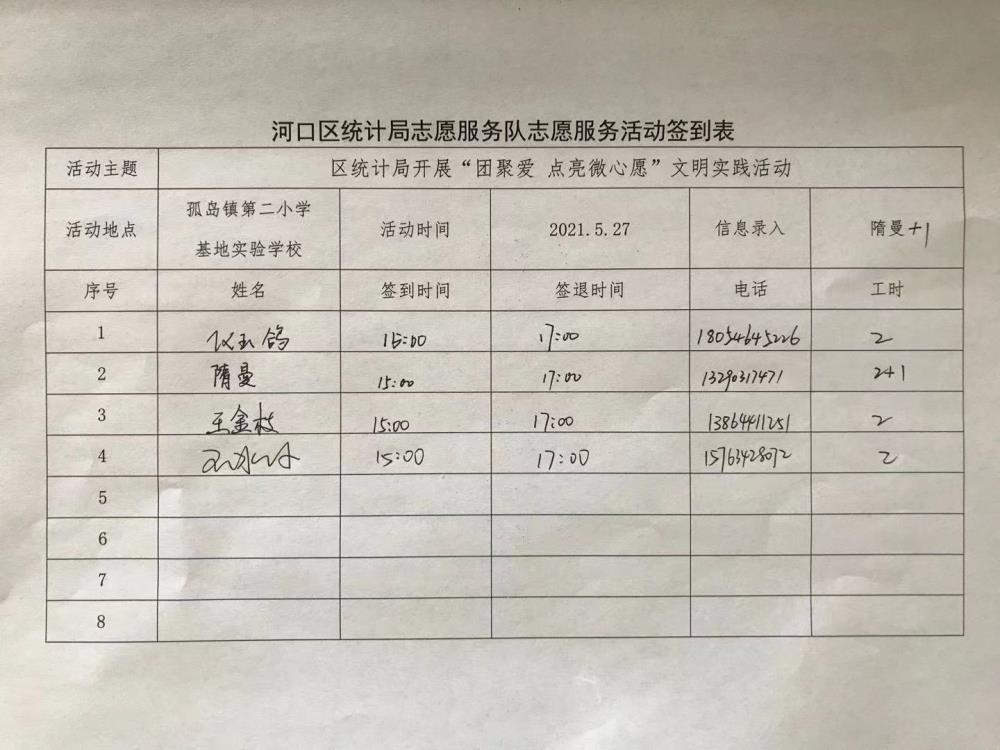 河口区统计局志愿服务队志愿服务活动签到表
活动主题 区统计局开展“团聚爱 点亮微心愿”文明实践活动
活动地点 孤岛镇第二小学 基地实验学校 活动时间 2021.5.27 信息录入 隋曼+1
序号 姓名 签到时间 签退时间 电话 工时
1 15:00 17:00 18054645226 2
2 隋曼 15:00 17:00 13290317471 2+1
3 王金枝 15:00 17:00 13864411251 2
4 15:00 17:00 15763428072 2
5
6
7
8